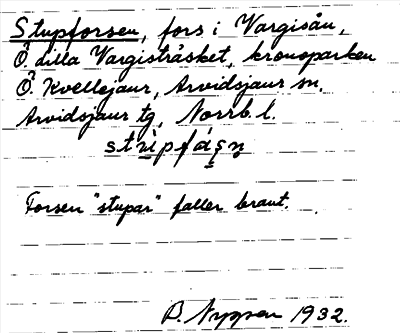 Stupforsen, fors i Vargisån,
Ö. lilla Vargisträsket, kronoparken
Ö. Kvellejaur, Arvidsjaur sn.
Arvidsjaur tg, Norrb. l.
Forsen "stupar" faller brant.
B. Nyman 1932.